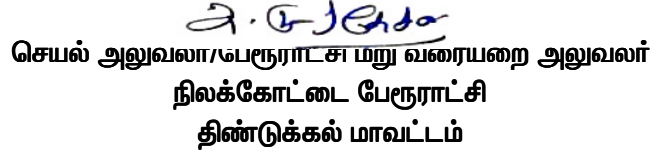 செயல் அலுவலர்/பேரூராட்சி மறு வரையறை அலுவலர்
நிலக்கோட்டை பேரூராட்சி
திண்டுக்கல் மாவட்டம்